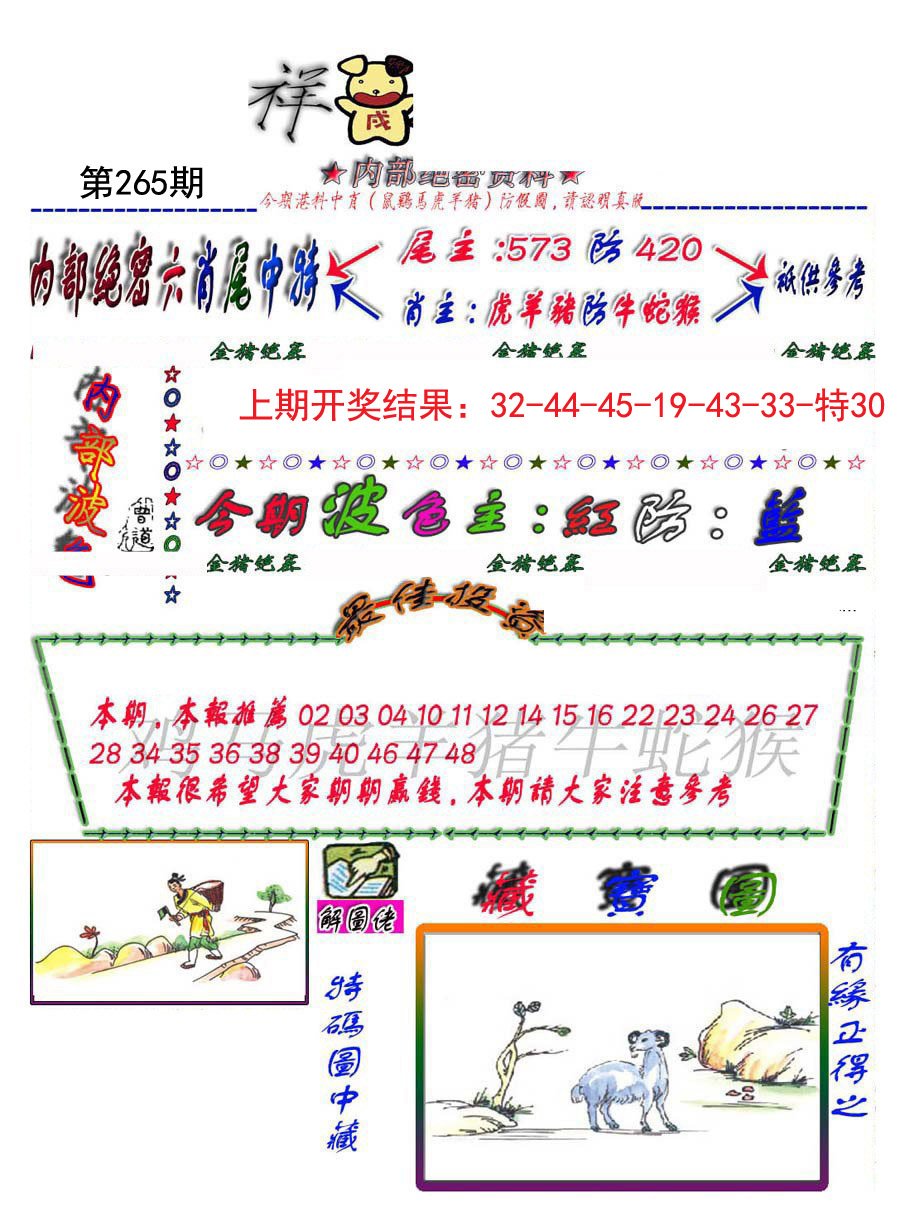 祥
戌
第265期
★内部绝密资料★
今期港料中肖(鼠鷄馬虎羊猪)防假圖,請認明真版
内部绝密六肖尾中特
尾主:573防420
肖主:虎羊豬防牛蛇猴
衹供參考
金猪绝密 金猪绝密 金猪绝密
内部波色
上期开奖结果：32-44-45-19-43-33-特30
☆◎★☆◎★☆◎★☆◎★☆◎★☆◎★☆◎★☆◎★☆◎☆
曾道
今期波色主:紅防:藍
金猪绝密 金猪绝密 金猪绝密
最佳投资
鸡马虎羊猪牛蛇猴
本期.本報推薦 02 03 04 10 11 12 14 15 16 22 23 24 26 27
28 34 35 36 38 39 40 46 47 48
本報很希望大家期期贏錢,本期請大家注意參考
解圖佬
特碼圖中藏
藏寶圖
有緣正得之